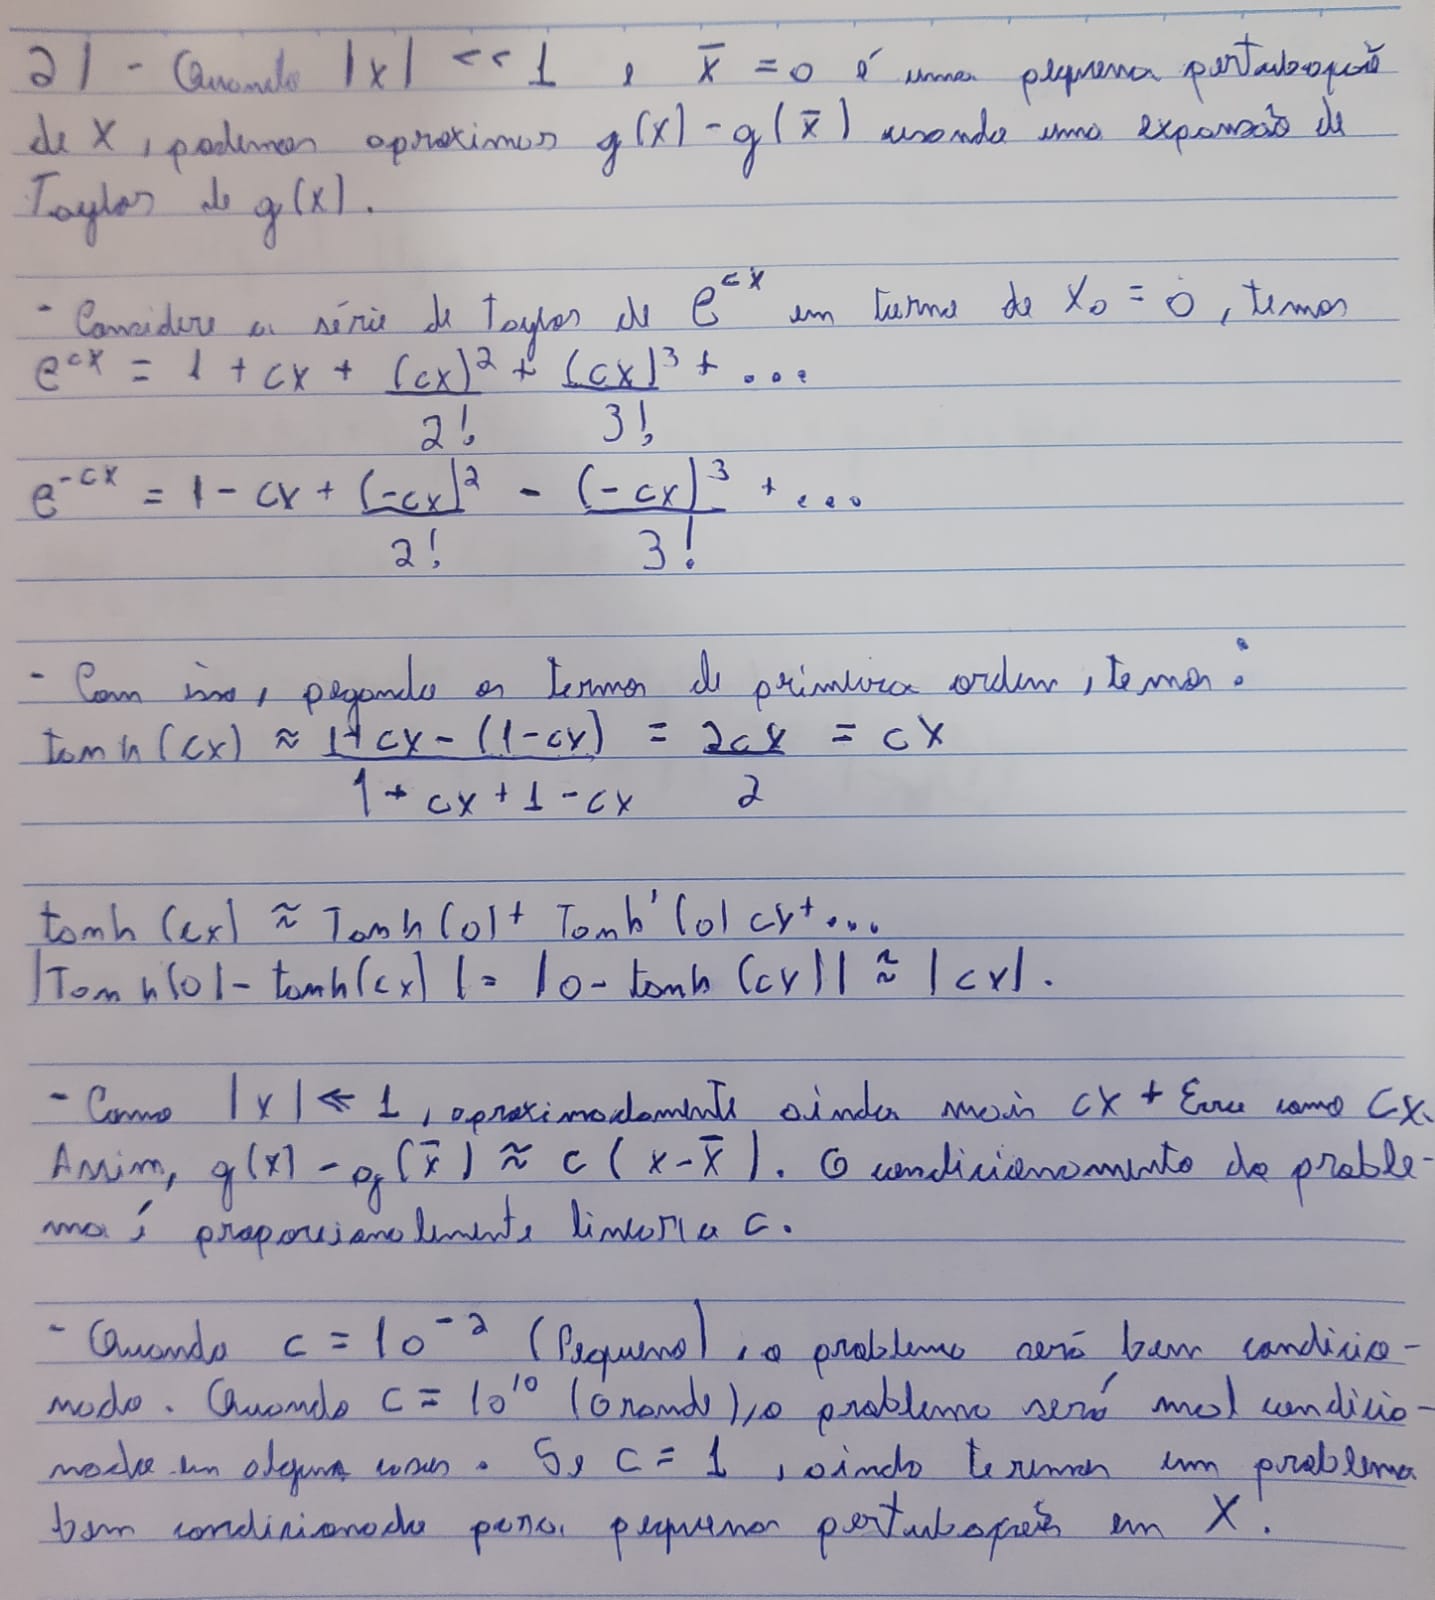 2) - Quando |x| << 1 , x̄ = 0 é uma pequena pertubação
de x, podemos aproximar g(x) - g(x̄) usando uma expansão de
Taylor de g(x).
- Considere a série de Taylor de e^{cx} em torno de x₀ = 0, temos
e^{cx} = 1 + cx + (cx)²/2! + (cx)³/3! + ...
e^{-cx} = 1 - cx + (-cx)²/2! - (-cx)³/3! + ...
- Com isso, pegando os termos de primeira ordem, temos:
tanh(cx) ≈ (1 + cx - (1 - cx))/(1 + cx + 1 - cx) = 2cx/2 = cx
tanh(cx) ≈ Tanh(0) + Tanh'(0) cx + ...
|Tanh(0) - tanh(cx)| = |0 - tanh(cx)| ≈ |cx|.
- Como |x| << 1, aproximadamente ainda mais cx + Erro como cx.
Assim, g(x) - g(x̄) ≈ c(x - x̄). O condicionamento do proble-
ma é proporcionalmente linear a c.
- Quando c = 10^{-2} (Pequeno), o problema será bem condicio-
nado. Quando c = 10^{10} (Grande), o problema será mal condicio-
nado em alguns casos. Se c = 1, ainda teremos um problema
bem condicionado para pequenas pertubações em x.